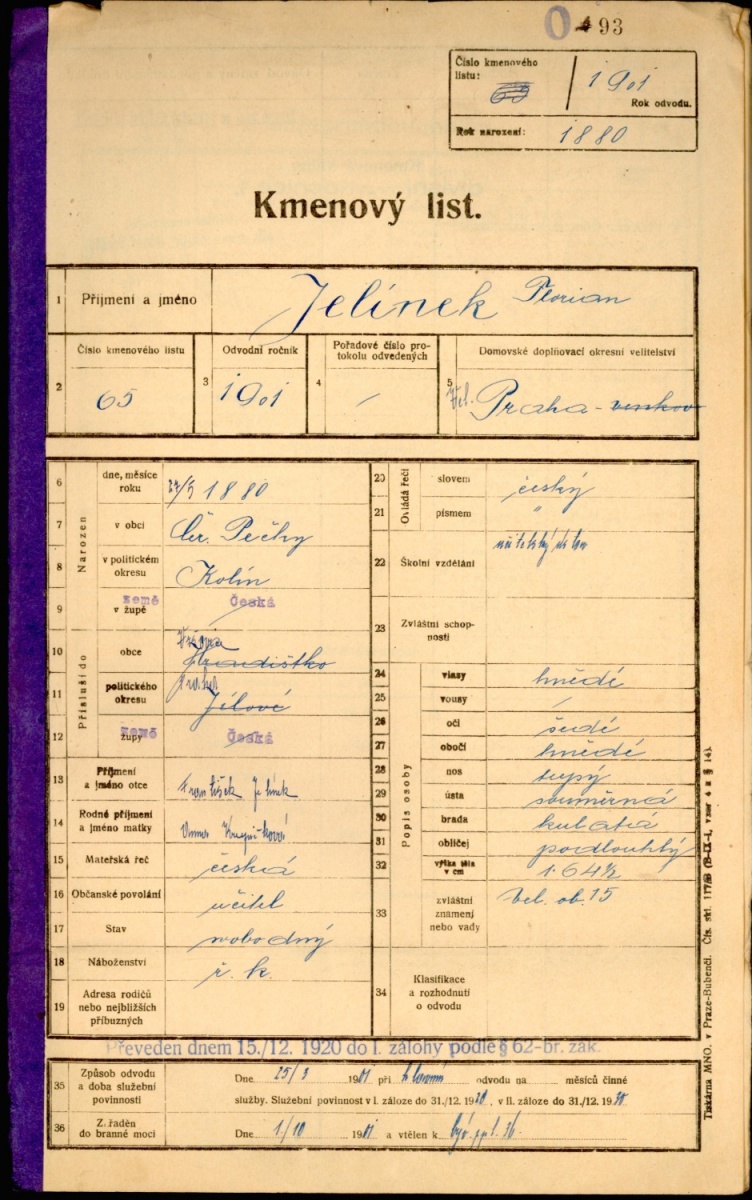 0 93
Číslo kmenového
listu:
65 / 1901
Rok odvodu.
Rok narození: 1880
Kmenový list.
1 Příjmení a jméno Jelínek Florian
2 Číslo kmenového listu 65
3 Odvodní ročník 1901
4 Pořadové číslo pro-
tokolu odvedených /
5 Domovské doplňovací okresní velitelství
Praha - venkov
Narozen
6 dne, měsíce
roku 1880
7 v obci Čer. Pečky
8 v politickém
okresu Kolín
9 v župě země Česká
Přísluší do
10 obce Hradištko
11 politického
okresu Praha Jílové
12 župy země Česká
13 Příjmení
a jméno otce František Jelínek
14 Rodné příjmení
a jméno matky Anna
15 Mateřská řeč česká
16 Občanské povolání učitel
17 Stav svobodný
18 Náboženství ř. k.
19 Adresa rodičů
nebo nejbližších
příbuzných
Ovládá řeči
20 slovem český
21 písmem "
22 Školní vzdělání učitelský ústav
23 Zvláštní schop-
nosti
Popis osoby
24 vlasy hnědé
25 vousy /
26 oči šedé
27 obočí hnědé
28 nos tupý
29 ústa souměrná
30 brada kulatá
31 obličej podlouhlý
32 výška těla
v cm 1·64½
33 zvláštní
znamení
nebo vady Vel. ob. 15
34 Klasifikace
a rozhodnutí
o odvodu
Převeden dnem 15./12. 1920 do I. zálohy podle § 62-br. zák.
35 Způsob odvodu
a doba služební
povinnosti
Dne 25/3 1901 při hlavním odvodu na měsíců činné
služby. Služební povinnost v I. záloze do 31./12. 1920, v II. záloze do 31./12. 1930.
36 Zařaden
do branné moci
Dne 1/10 1901 a vtělen k býv. 36.
Tiskárna MNO. v Praze-Bubenči. Čís. skl.